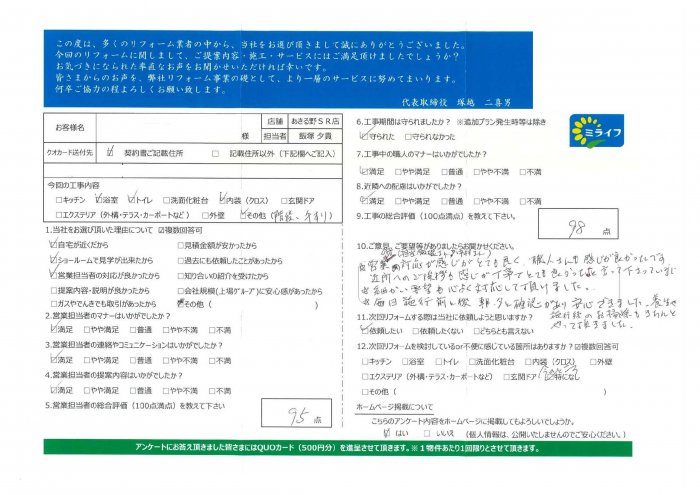 この度は、多くのリフォーム業者の中から、当社をお選び頂きまして誠にありがとうございました。
今回のリフォームに関しまして、ご提案内容・施工・サービスにはご満足頂けましたでしょうか?
お気づきになられた率直なお声をお聞かせいただければ幸いです。
皆さまからのお声を、弊社リフォーム事業の礎として、より一層のサービスに努めてまいります。
何卒ご協力の程よろしくお願い致します。
代表取締役 塚越 二喜男
お客様名 様 店舗 あきる野SR店
担当者 飯塚 夕貴
クオカード送付先 ☑ 契約書ご記載住所 □ 記載住所以外(下記欄へご記入)
今回の工事内容
□キッチン ☑浴室 ☑トイレ □洗面化粧台 ☑内装(クロス) □玄関ドア
□エクステリア(外構・テラス・カーポートなど) □外壁 ☑その他(階段、手すり)
1.当社をお選び頂いた理由について ☑複数回答可
☑自宅が近くだから □見積金額が安かったから
☑ショールームで見学が出来たから □過去にも依頼したことがあったから
☑営業担当者の対応が良かったから □知り合いの紹介を受けたから
□提案内容・説明が良かったから □会社規模(上場グループ)に安心感があったから
□ガスやでんきでも取引があったから ☑その他( )
2.営業担当者のマナーはいかがでしたか?
☑満足 □やや満足 □普通 □やや不満 □不満
3.営業担当者の連絡やコミュニケーションはいかがでしたか?
☑満足 □やや満足 □普通 □やや不満 □不満
4.営業担当者の提案内容はいかがでしたか?
☑満足 □やや満足 □普通 □やや不満 □不満
5.営業担当者の総合評価(100点満点)を教えて下さい
95 点
6.工事期間は守られましたか? ※追加プラン発生時等は除き
☑守られた □守られなかった
ミライフ
7.工事中の職人のマナーはいかがでしたか?
☑満足 □やや満足 □普通 □やや不満 □不満
8.近隣への配慮はいかがでしたか?
☑満足 □やや満足 □普通 □やや不満 □不満
9.工事の総合評価(100点満点)を教えて下さい
98 点
10.ご意見、ご要望等がありましたらお聞かせください。
営業 対応が感じがとても良く、職人さんも感じが良かったです。
近所へのご挨拶も感じが丁寧でとても良かったと言って下さっていました
細かい要望も心よく対応して頂けました。
毎日施行前と後 確認があり安心できました。養生や
施行後のお掃除もきちんと
やって頂きました。
11.次回リフォームする際は当社に依頼しようと思いますか?
☑依頼したい □依頼したくない □どちらとも言えない
12.次回リフォームを検討しているor不便に感じている箇所はありますか?☑複数回答可
□キッチン □浴室 □トイレ □洗面化粧台 □内装(クロス) □外壁
□エクステリア(外構・テラス・カーポートなど) □玄関ドア ☑特になし
□その他( )
ホームページ掲載について
こちらのアンケート内容をホームページに掲載してもよろしいでしょうか。
☑ はい □ いいえ (個人情報は、公開いたしませんのでご安心ください。)
アンケートにお答え頂きました皆さまにはQUOカード(500円分)を進呈させて頂きます。※1物件あたり1回限りとさせて頂きます。